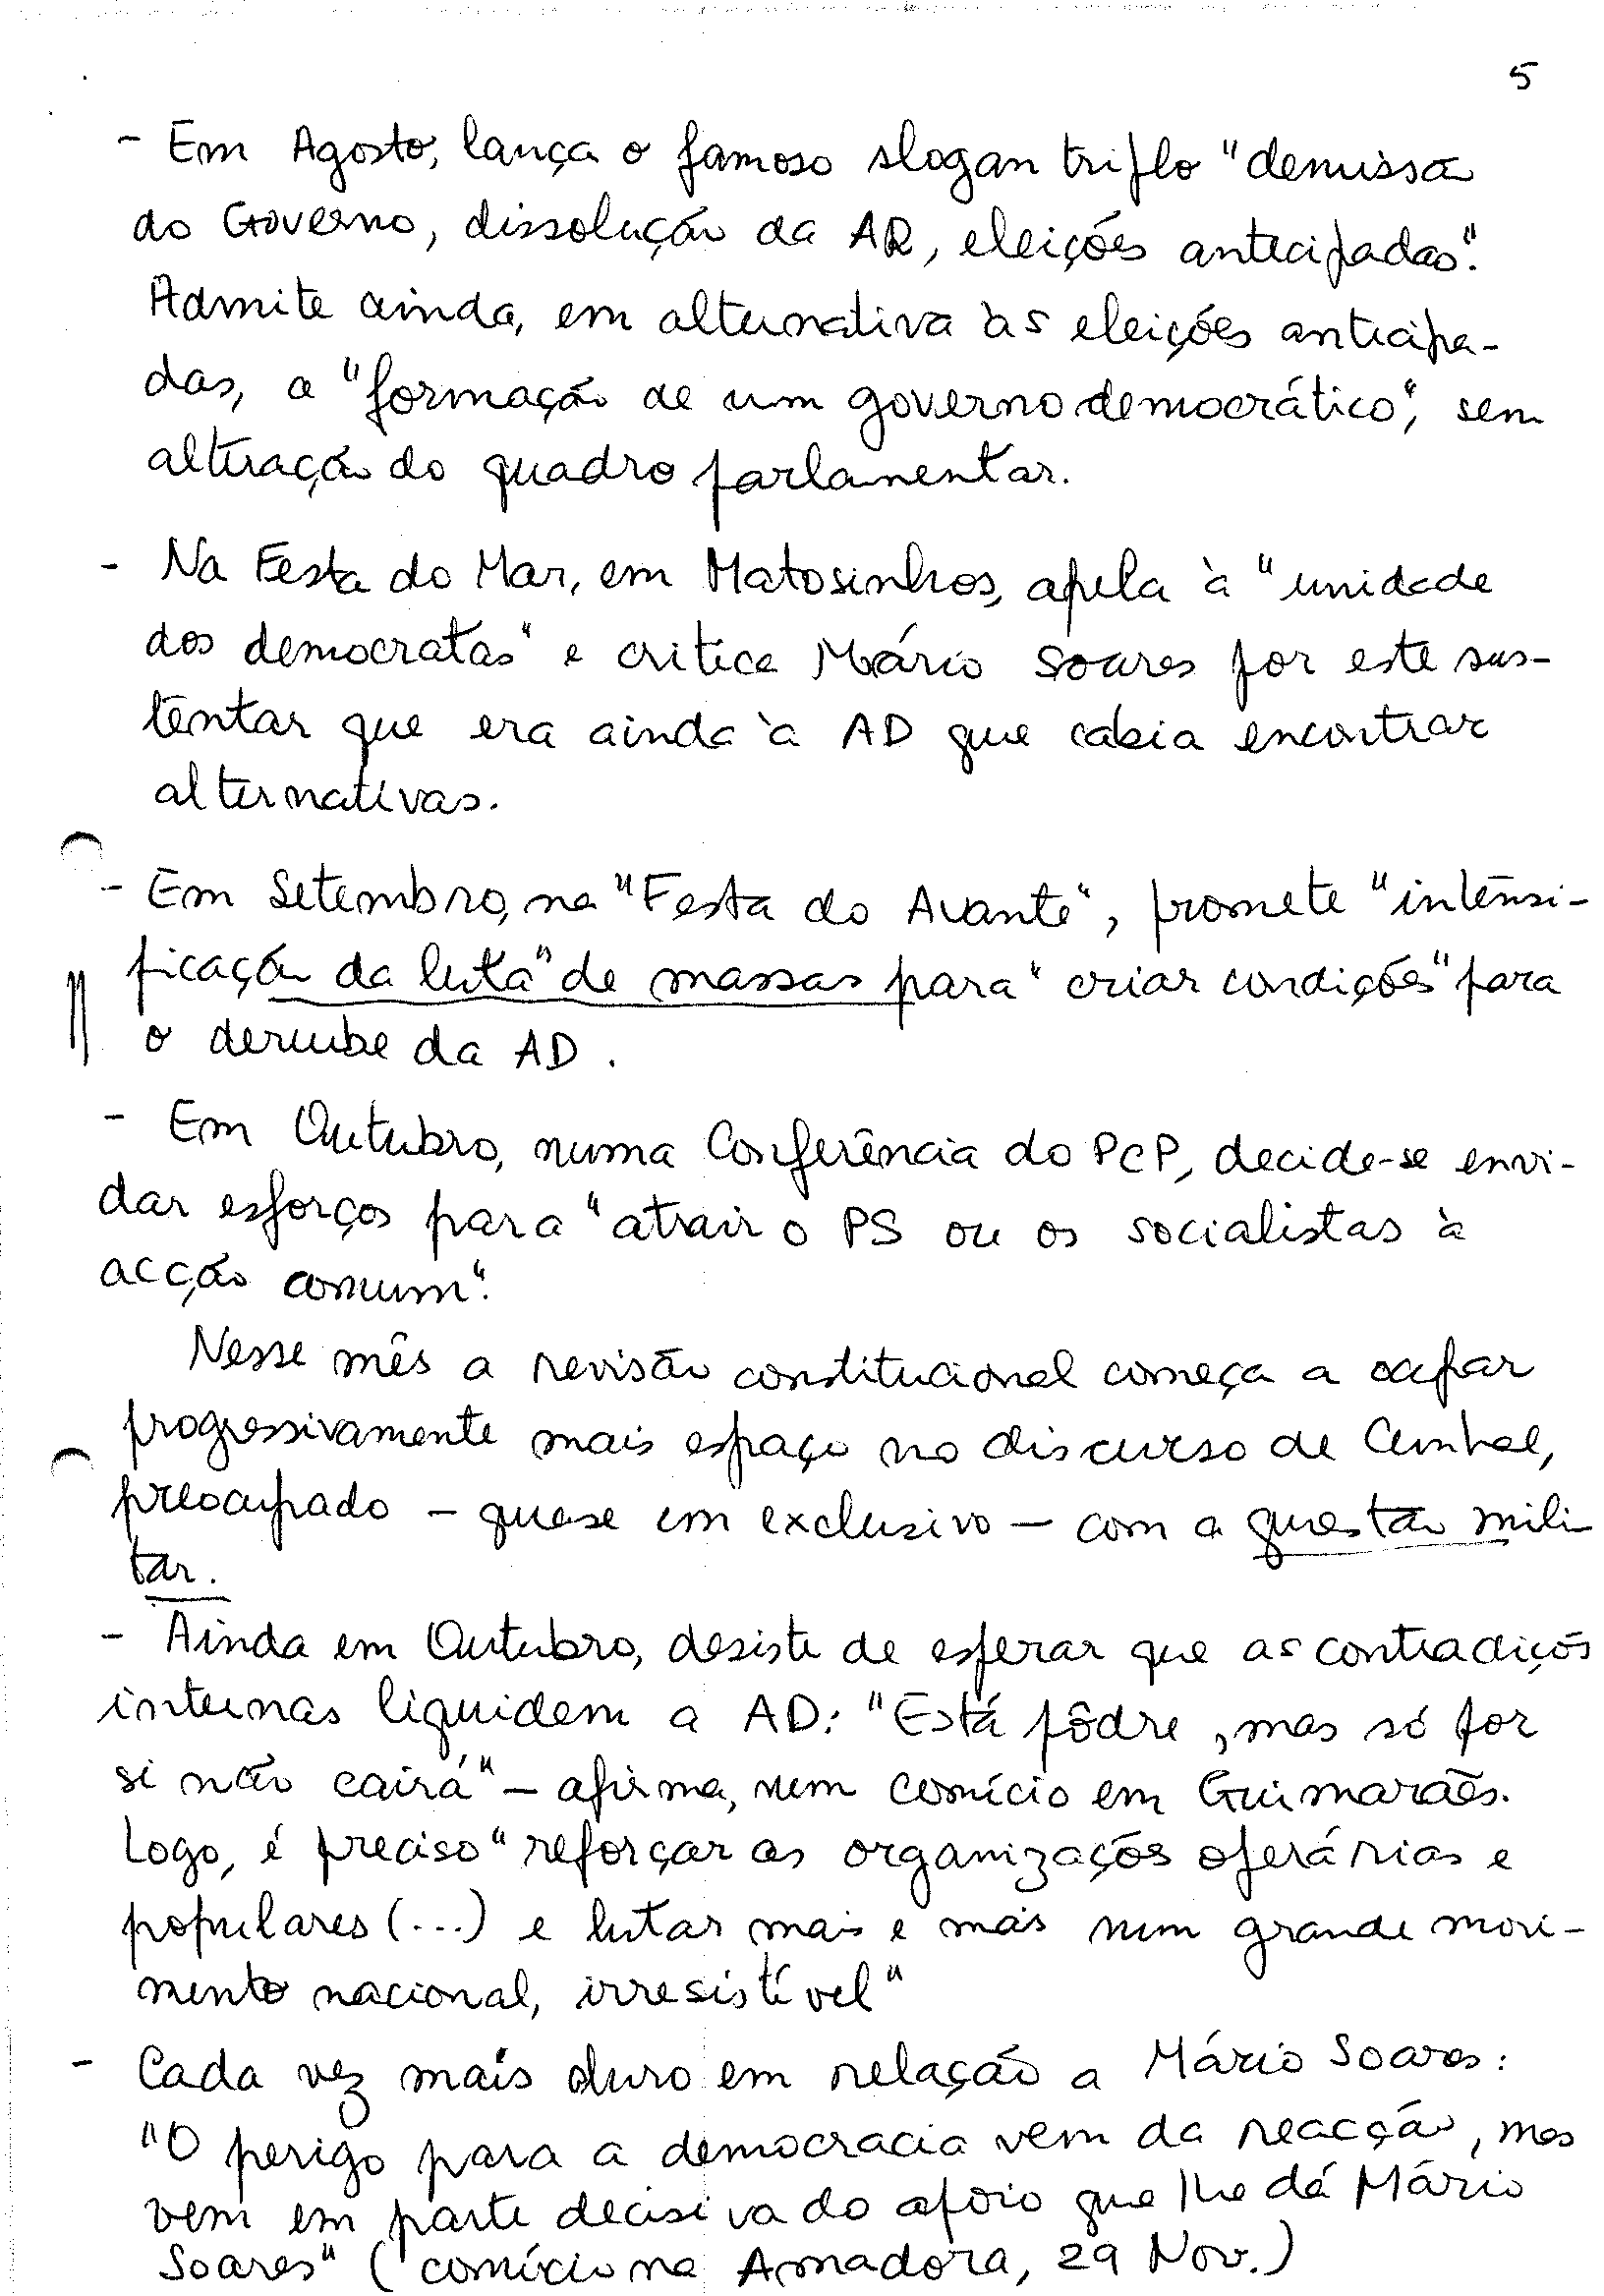 5
- Em Agosto, lança o famoso slogan triplo "demissão
do Governo, dissolução da AR, eleições antecipadas".
Admite ainda, em alternativa às eleições antecipa-
das, a "formação de um governo democrático", sem
alteração do quadro parlamentar.
- Na Festa do Mar, em Matosinhos, apela à "unidade
dos democratas" e critica Mário Soares por este sus-
tentar que era ainda à AD que cabia encontrar
alternativas.
- Em Setembro, na "Festa do Avante", promete "intensi-
ficação da luta" de massas para "criar condições" para
o derrube da AD.
- Em Outubro, numa Conferência do PCP, decide-se envi-
dar esforços para "atrair o PS ou os socialistas à
acção comum".
Nesse mês a revisão constitucional começa a ocupar
progressivamente mais espaço no discurso de Cunhal,
preocupado - quase em exclusivo - com a questão mili-
tar.
- Ainda em Outubro, desiste de esperar que as contradições
internas liquidem a AD: "Está pôdre, mas só por
si não cairá" - afirma, num comício em Guimarães.
Logo, é preciso "reforçar as organizações operárias e
populares (...) e lutar mais e mais num grande movi-
mento nacional, irresistível"
- Cada vez mais duro em relação a Mário Soares:
"O perigo para a democracia vem da reacção, mas
vem em parte decisiva do apoio que lhe dá Mário
Soares" (comício na Amadora, 29 Nov.)